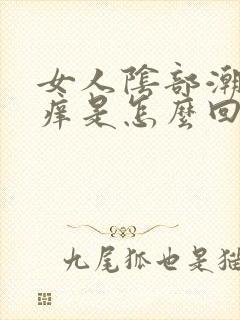 女人陰部潮
痒是怎麼回
九尾狐也是猫